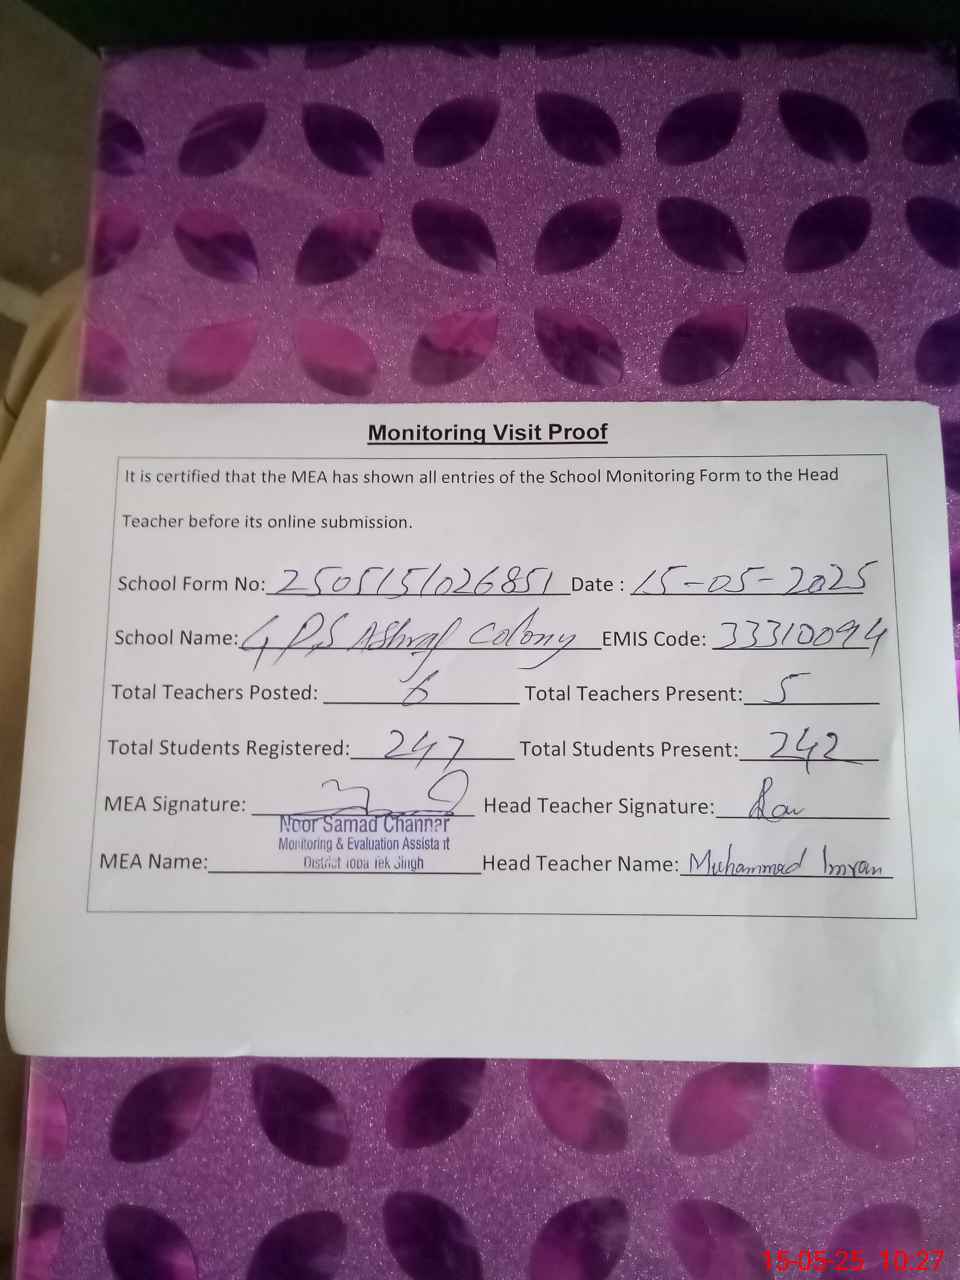 Monitoring Visit Proof
It is certified that the MEA has shown all entries of the School Monitoring Form to the Head
Teacher before its online submission.
School Form No: 2505151026851 Date : 15-05-2025
School Name: GPS Ashraf Colony EMIS Code: 33310094
Total Teachers Posted: 6 Total Teachers Present: 5
Total Students Registered: 247 Total Students Present: 242
MEA Signature: Head Teacher Signature:
Noor Samad Channar
Monitoring & Evaluation Assistant
District Toba Tek Singh
MEA Name: Head Teacher Name: Muhammad Imran
15-05-25 10:27